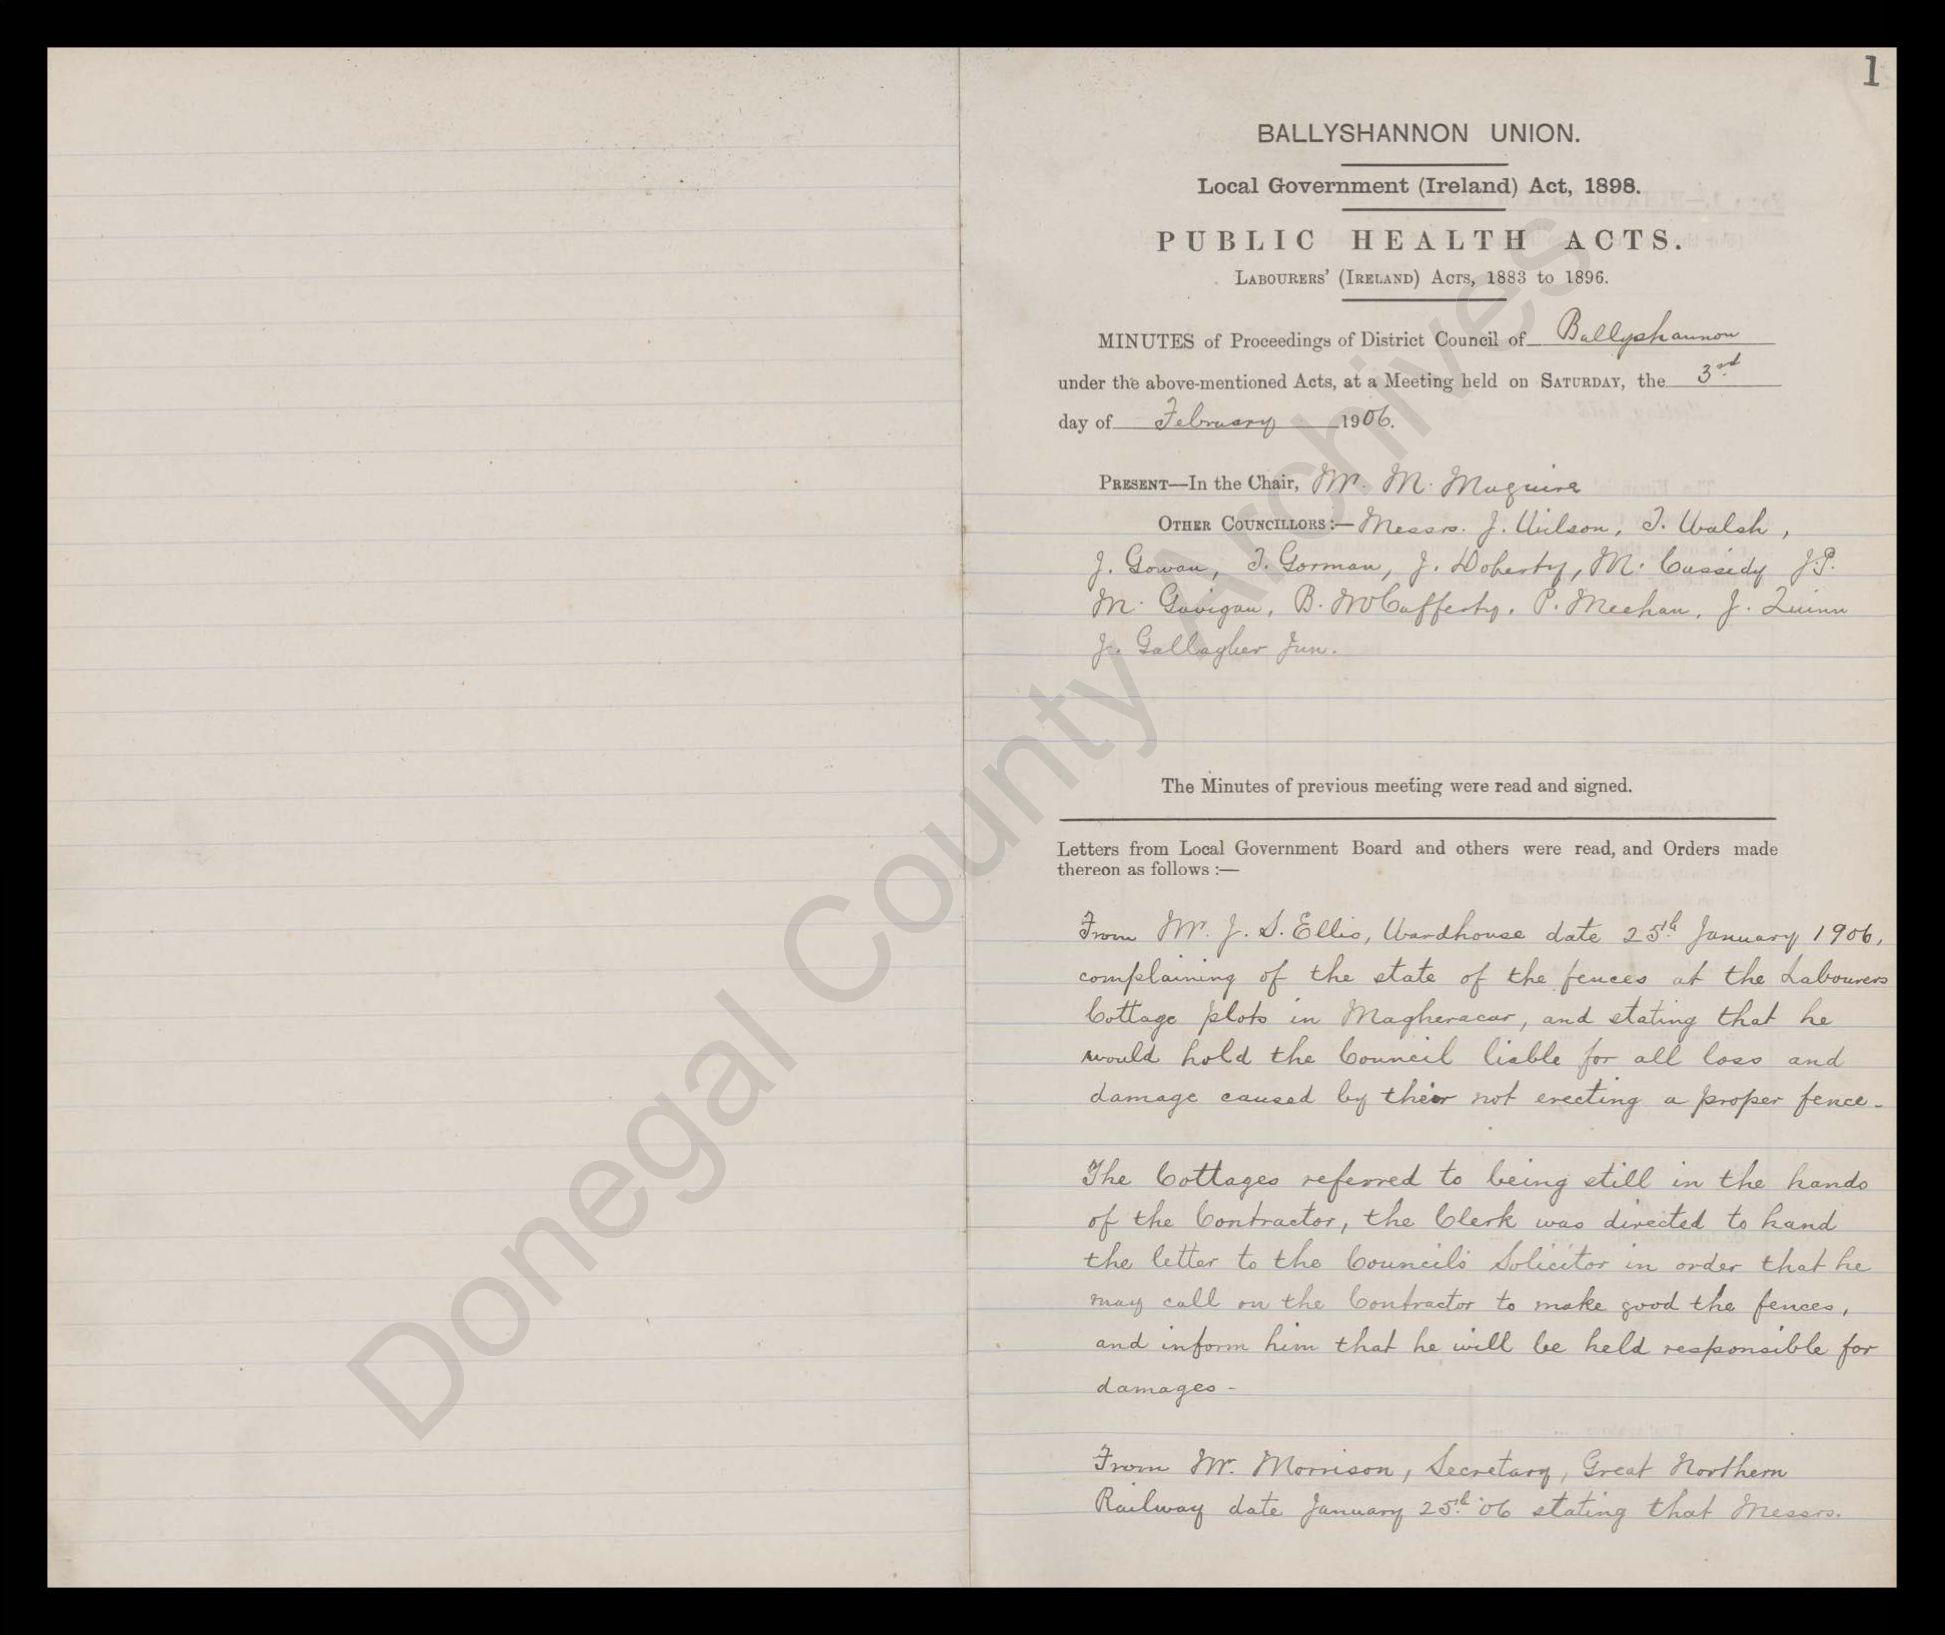 1
BALLYSHANNON UNION.
Local Government (Ireland) Act, 1898.
PUBLIC HEALTH ACTS.
LABOURERS' (IRELAND) ACTS, 1883 to 1896.
MINUTES of Proceedings of District Council of Ballyshannon
under the above-mentioned Acts, at a Meeting held on SATURDAY, the 3rd
day of February 1906.
PRESENT—In the Chair, Mr. M. Maguire
OTHER COUNCILLORS:— Messrs. J. Wilson, T. Walsh,
J. Gowan, T. Gorman, J. Doherty, M. Cassidy J.P.
M. Gavigan, B. McCafferty, P. Meehan, J. Quinn
J. Gallagher Jun.
The Minutes of previous meeting were read and signed.
Letters from Local Government Board and others were read, and Orders made
thereon as follows:—
From Mr. J. S. Ellis, Wardhouse date 25th January 1906,
complaining of the state of the fences at the Labourers
Cottage plots in Magheracar, and stating that he
would hold the Council liable for all loss and
damage caused by their not erecting a proper fence-
The Cottages referred to being still in the hands
of the Contractor, the Clerk was directed to hand
the letter to the Council's Solicitor in order that he
may call on the Contractor to make good the fences,
and inform him that he will be held responsible for
damages-
From Mr. Morrison, Secretary, Great Northern
Railway date January 25th '06 stating that Messrs.
Donegal County Archives